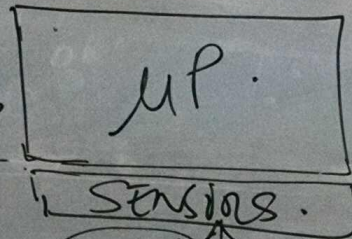 μP.
SENSORS.